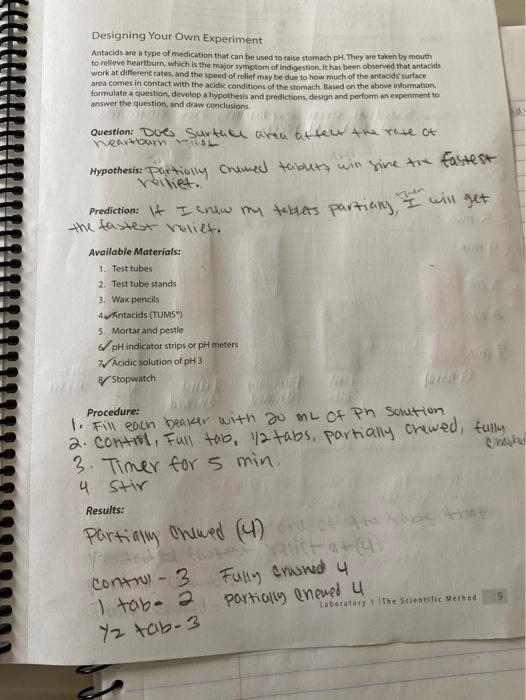 Designing Your Own Experiment
Antacids are a type of medication that can be used to raise stomach pH. They are taken by mouth
to relieve heartburn, which is the major symptom of indigestion. It has been observed that antacids
work at different rates, and the speed of relief may be due to how much of the antacids' surface
area comes in contact with the acidic conditions of the stomach. Based on the above information,
formulate a question, develop a hypothesis and predictions, design and perform an experiment to
answer the question, and draw conclusions.
Question: Does Surface area affect the rate of
heartburn
Hypothesis: Partially chewed tablets will give the fastest
relliet.
Prediction: If I chew my tablets partially, then I will get
the fastest relief.
Available Materials:
1. Test tubes
2. Test tube stands
3. Wax pencils
4. Antacids (TUMS®)
5. Mortar and pestle
6. pH indicator strips or pH meters
7. Acidic solution of pH 3
8. Stopwatch
Procedure:
1. Fill each beaker with 20 mL of Ph Solution
2. control, Full tab, 1/2 tabs, partially chewed, fully
3. Timer for 5 min.
4. Stir
Results:
Partially Chewed (4)
control - 3 Fully crushed 4
1 tab - 2 partially chewed 4
Laboratory 1 | The Scientific Method 9
1/2 tab - 3